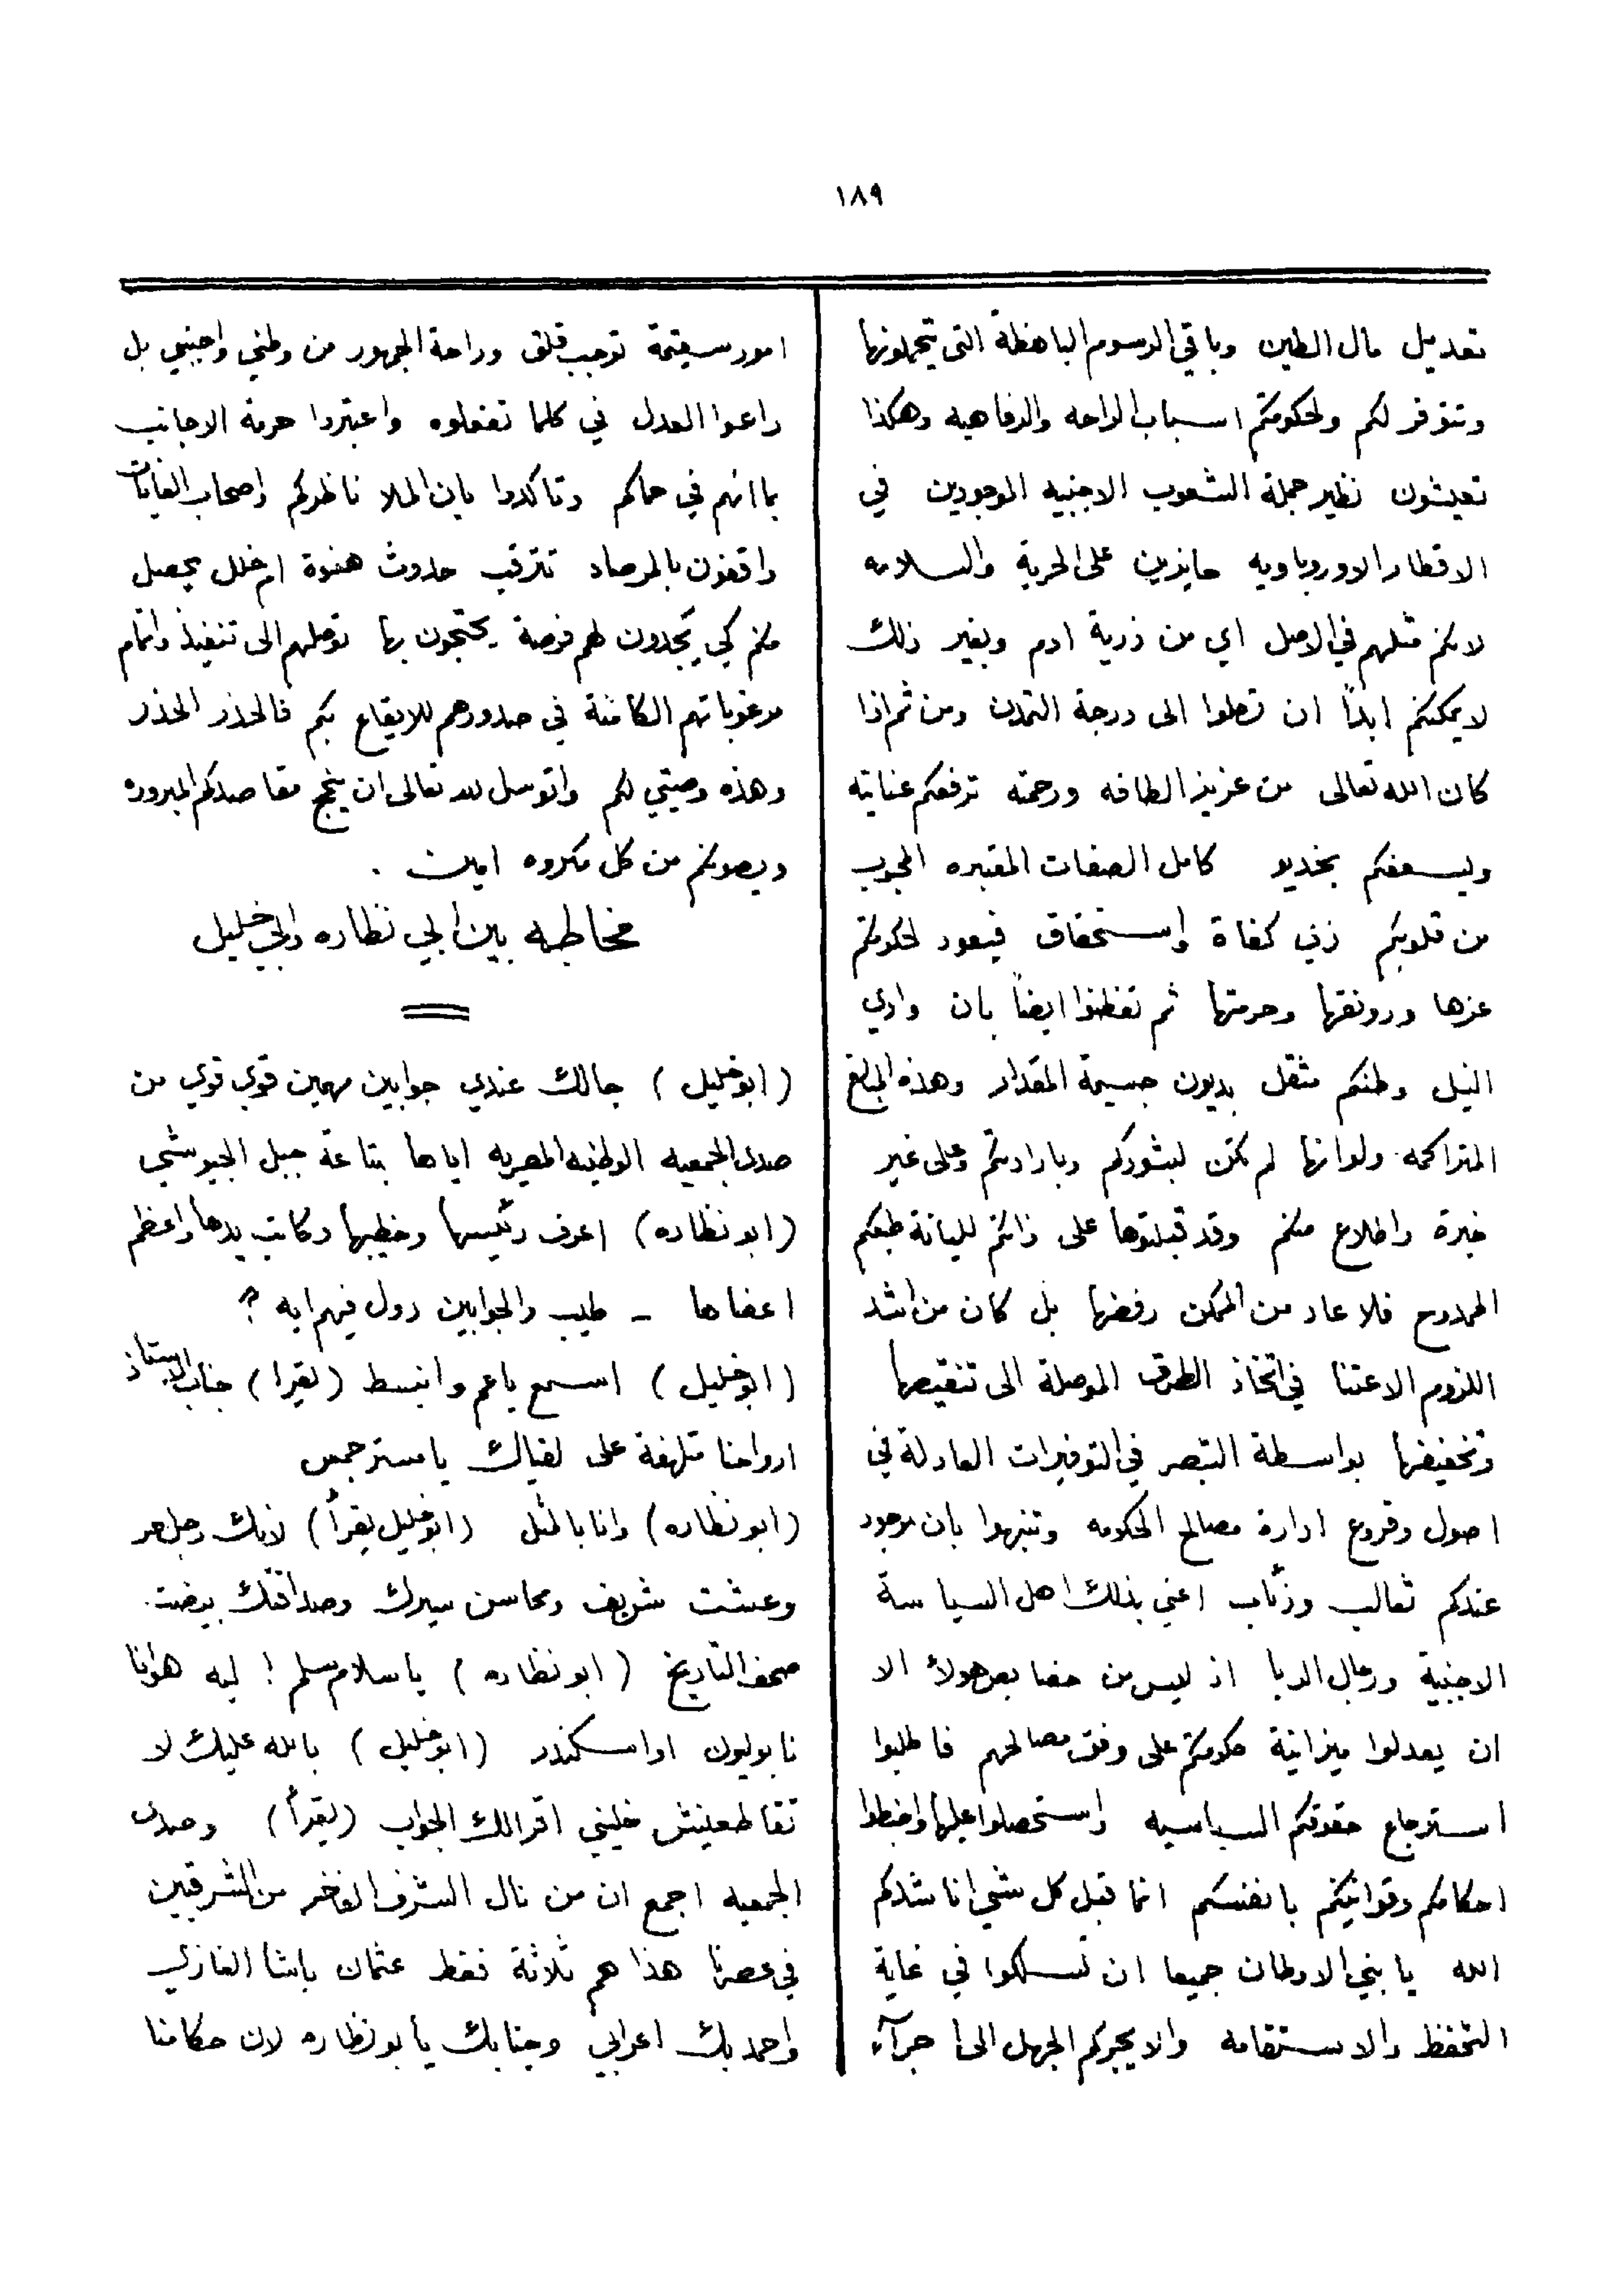 ١٨٩
تعديل مال الطين وباقي الرسوم الباهظة التى تتحملونها
وتتوفر لكم ولحكومتكم اسباب الراحه والرفاهيه وهكذا
تعيشون نظير جملة الشعوب الاجنبيه الموجودين في
الاقطار الاوروباويه حايزين على الحرية والسلامه
لانكم مثلهم في الاصل اي من ذرية ادم وبغير ذلك
لا يمكنكم ابداً ان تصلوا الى درجة التمدن ومن ثم اذا
كان الله تعالى من عزيز الطافه ورحمته ترفعكم عنايته
ويسعفكم بخديو كامل الصفات المعتبره المحبوب
من قلوبكم ذي كفاة واستحقاق فيعود لحكومتكم
عزها ورونقها وحرمتها ثم تفطنوا ايضاً بان وادي
النيل وطنكم مثقل بديون جسيمة المقدار وهذه المبالغ
المتراكمه ولو انها لم تكن لبشوركم وبارادتكم وعلى غير
خبرة واطلاع منكم وقد قبلتوها على ذاتكم لليانة طبعكم
الممدوح فلا عاد من الممكن رفضها بل كان من اشد
اللزوم الاعتنا في اتخاذ الطرق الموصلة الى تنقيصها
وتخفيضها بواسطة التبصر في التوفيرات العادلة في
اصول وفروع ادارة مصالح الحكومه وتنبهوا بان موجود
عندكم ثعالب وزئاب اعني بذلك اهل السياسة
الاجنبية ورجال الديا اذ ليس من خصايص هولاء الا
ان يعدلوا ميزانية حكومتكم على وفق مصالحهم فاطلبوا
استرجاع حقوقكم السياسيه واستحصلوا عليها واضبطوا
احكامكم وقوانينكم بانفسكم انما قبل كل شي اناشدكم
الله يا بني الاوطان جميعا ان تسلكوا في غاية
التحفظ والاستقامه والا يجبركم الجهل الى اجرآء
امور سقيمة توجب قلق وراحة الجمهور من وطني واجنبي بل
راعوا العدل في كلما تفعلوه واعتبروا حرمة الاجانب
بما انهم في حماكم وتاكدوا بان الملا ناظركم واصحاب الغايات
واقفون بالمرصاد تترقب حدوث هفوة ام خلل يحصل
منكم كي يجدون لهم فرصة يحتجون بها توصلهم الى تنفيذ واتمام
مرغوباتهم الكامنة في صدورهم للايقاع بكم فالحذر الحذر
وهذه وصيتي لكم واتوسل لله تعالى ان ينجح مقاصدكم المبروره
ويصونكم من كل مكروه امين .
مخاطبه بين ابي نظاره وابي خليل
(ابو خليل) جالك عندي جوابين مهمين قوي قوي من
صدر الجمعيه الوطنيه المصريه اياها بتاعة جبل الجيوشي
(ابو نظاره) اعرف رئيسها وخطيبها وكاتب يدها واعظم
اعضاها - طيب والجوابين دول فيهم ايه ?
(ابو خليل) اسمع يا عم وانبسط (يقرا) جناب الاستاذ
ارواحنا متلهفة على لقياك يا مستر جمس
(ابو نظاره) وانا بالمثل (ابو خليل يقرأ) لانك رجل حر
وعشت شريف ومحاسن سيرك وصداقتك بيضت
صحف التاريخ (ابو نظاره) يا سلام سلم ! ليه هو انا
نابوليون او اسكندر (ابو خليل) بالله عليك لا
تقاطعنيش خليني اقرالك الجواب (يقرأ) وصدر
الجمعيه اجمع ان من نال الشرف الفاخر من الشرقيين
في عصرنا هذا هم ثلاثة فقط عثمان باشا الغازي
واحمد بك اعرابي وجنابك يا بو نظاره لان حكامنا